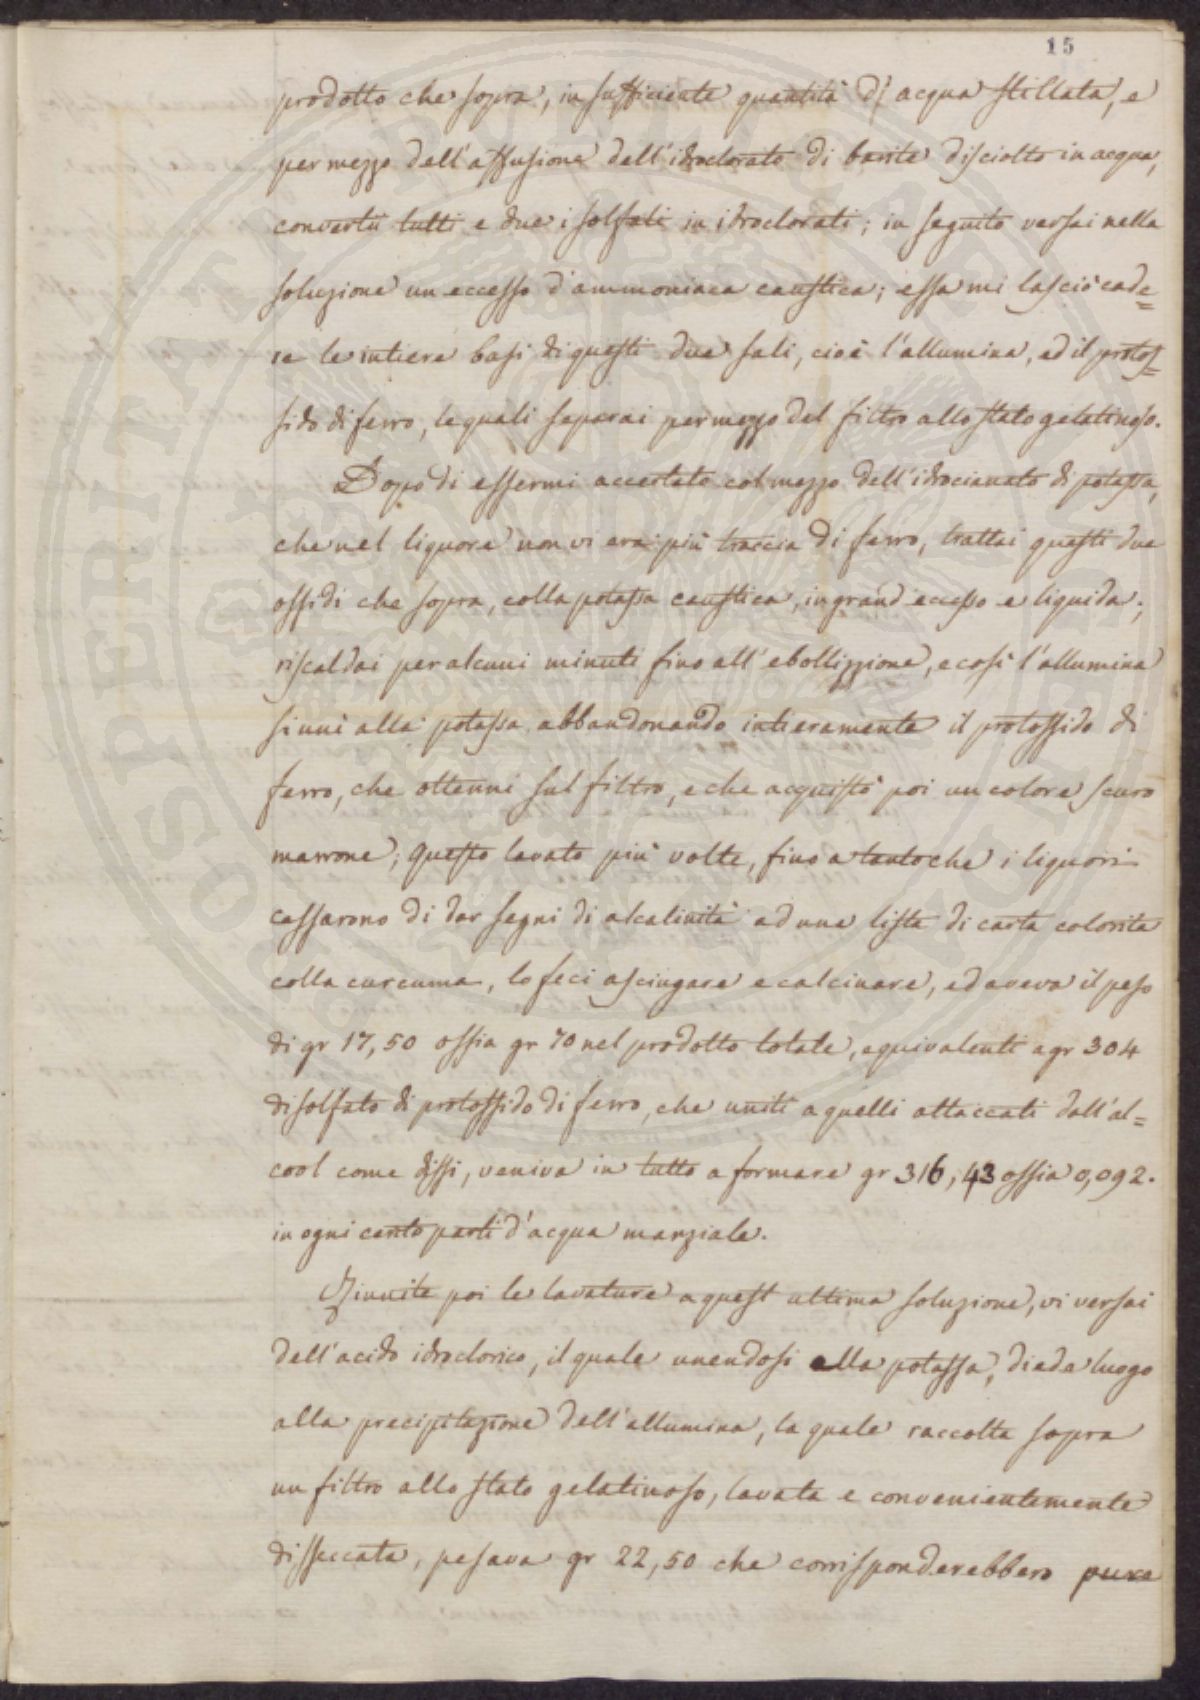 15
prodotto che sopra, in sufficiente quantità di acqua stillata, e
per mezzo dell'affusione dell'idroclorato di barite disciolto in acqua,
convertii tutti e due i solfati in idroclorati; in seguito versai nella
soluzione un eccesso d'ammoniaca caustica; essa mi lasciò cade=
re le intiere basi di questi due sali, cioè l'allumina, ed il protos=
sido di ferro, le quali separai per mezzo del filtro allo stato gelatinoso.
Dopo di essermi accertato col mezzo dell'idrocianato di potassa,
che nel liquore non vi era più traccia di ferro, trattai questi due
ossidi che sopra, colla potassa caustica, in grand'eccesso e liquida;
riscaldai per alcuni minuti fino all'ebollizzione, e così l'allumina
si unì alla potassa abbandonando intieramente il protossido di
ferro, che ottenni sul filtro, e che acquistò poi un colore scuro
marrone; questo lavato più volte, fino a tanto che i liquori
cessarono di dar segni di alcalinità ad una lista di carta colorita
colla curcuma, lo feci asciugare e calcinare, ed aveva il peso
di gr 17,50 ossia gr 70 nel prodotto totale, equivalenti a gr 304
di solfato di protossido di ferro, che uniti a quelli attaccati dall'al=
cool come dissi, veniva in tutto a formare gr 316,43 ossia 0,092.
in ogni cento parti d'acqua marziale.
Riunite poi le lavature a quest ultima soluzione, vi versai
dell'acido idroclorico, il quale unendosi alla potassa, diede luogo
alla precipitazione dell'allumina, la quale raccolta sopra
un filtro allo stato gelatinoso, lavata e convenientemente
disseccata, pesava gr 22,50 che corrisponderebbero pure
PROSPERITATI PUBLICAE